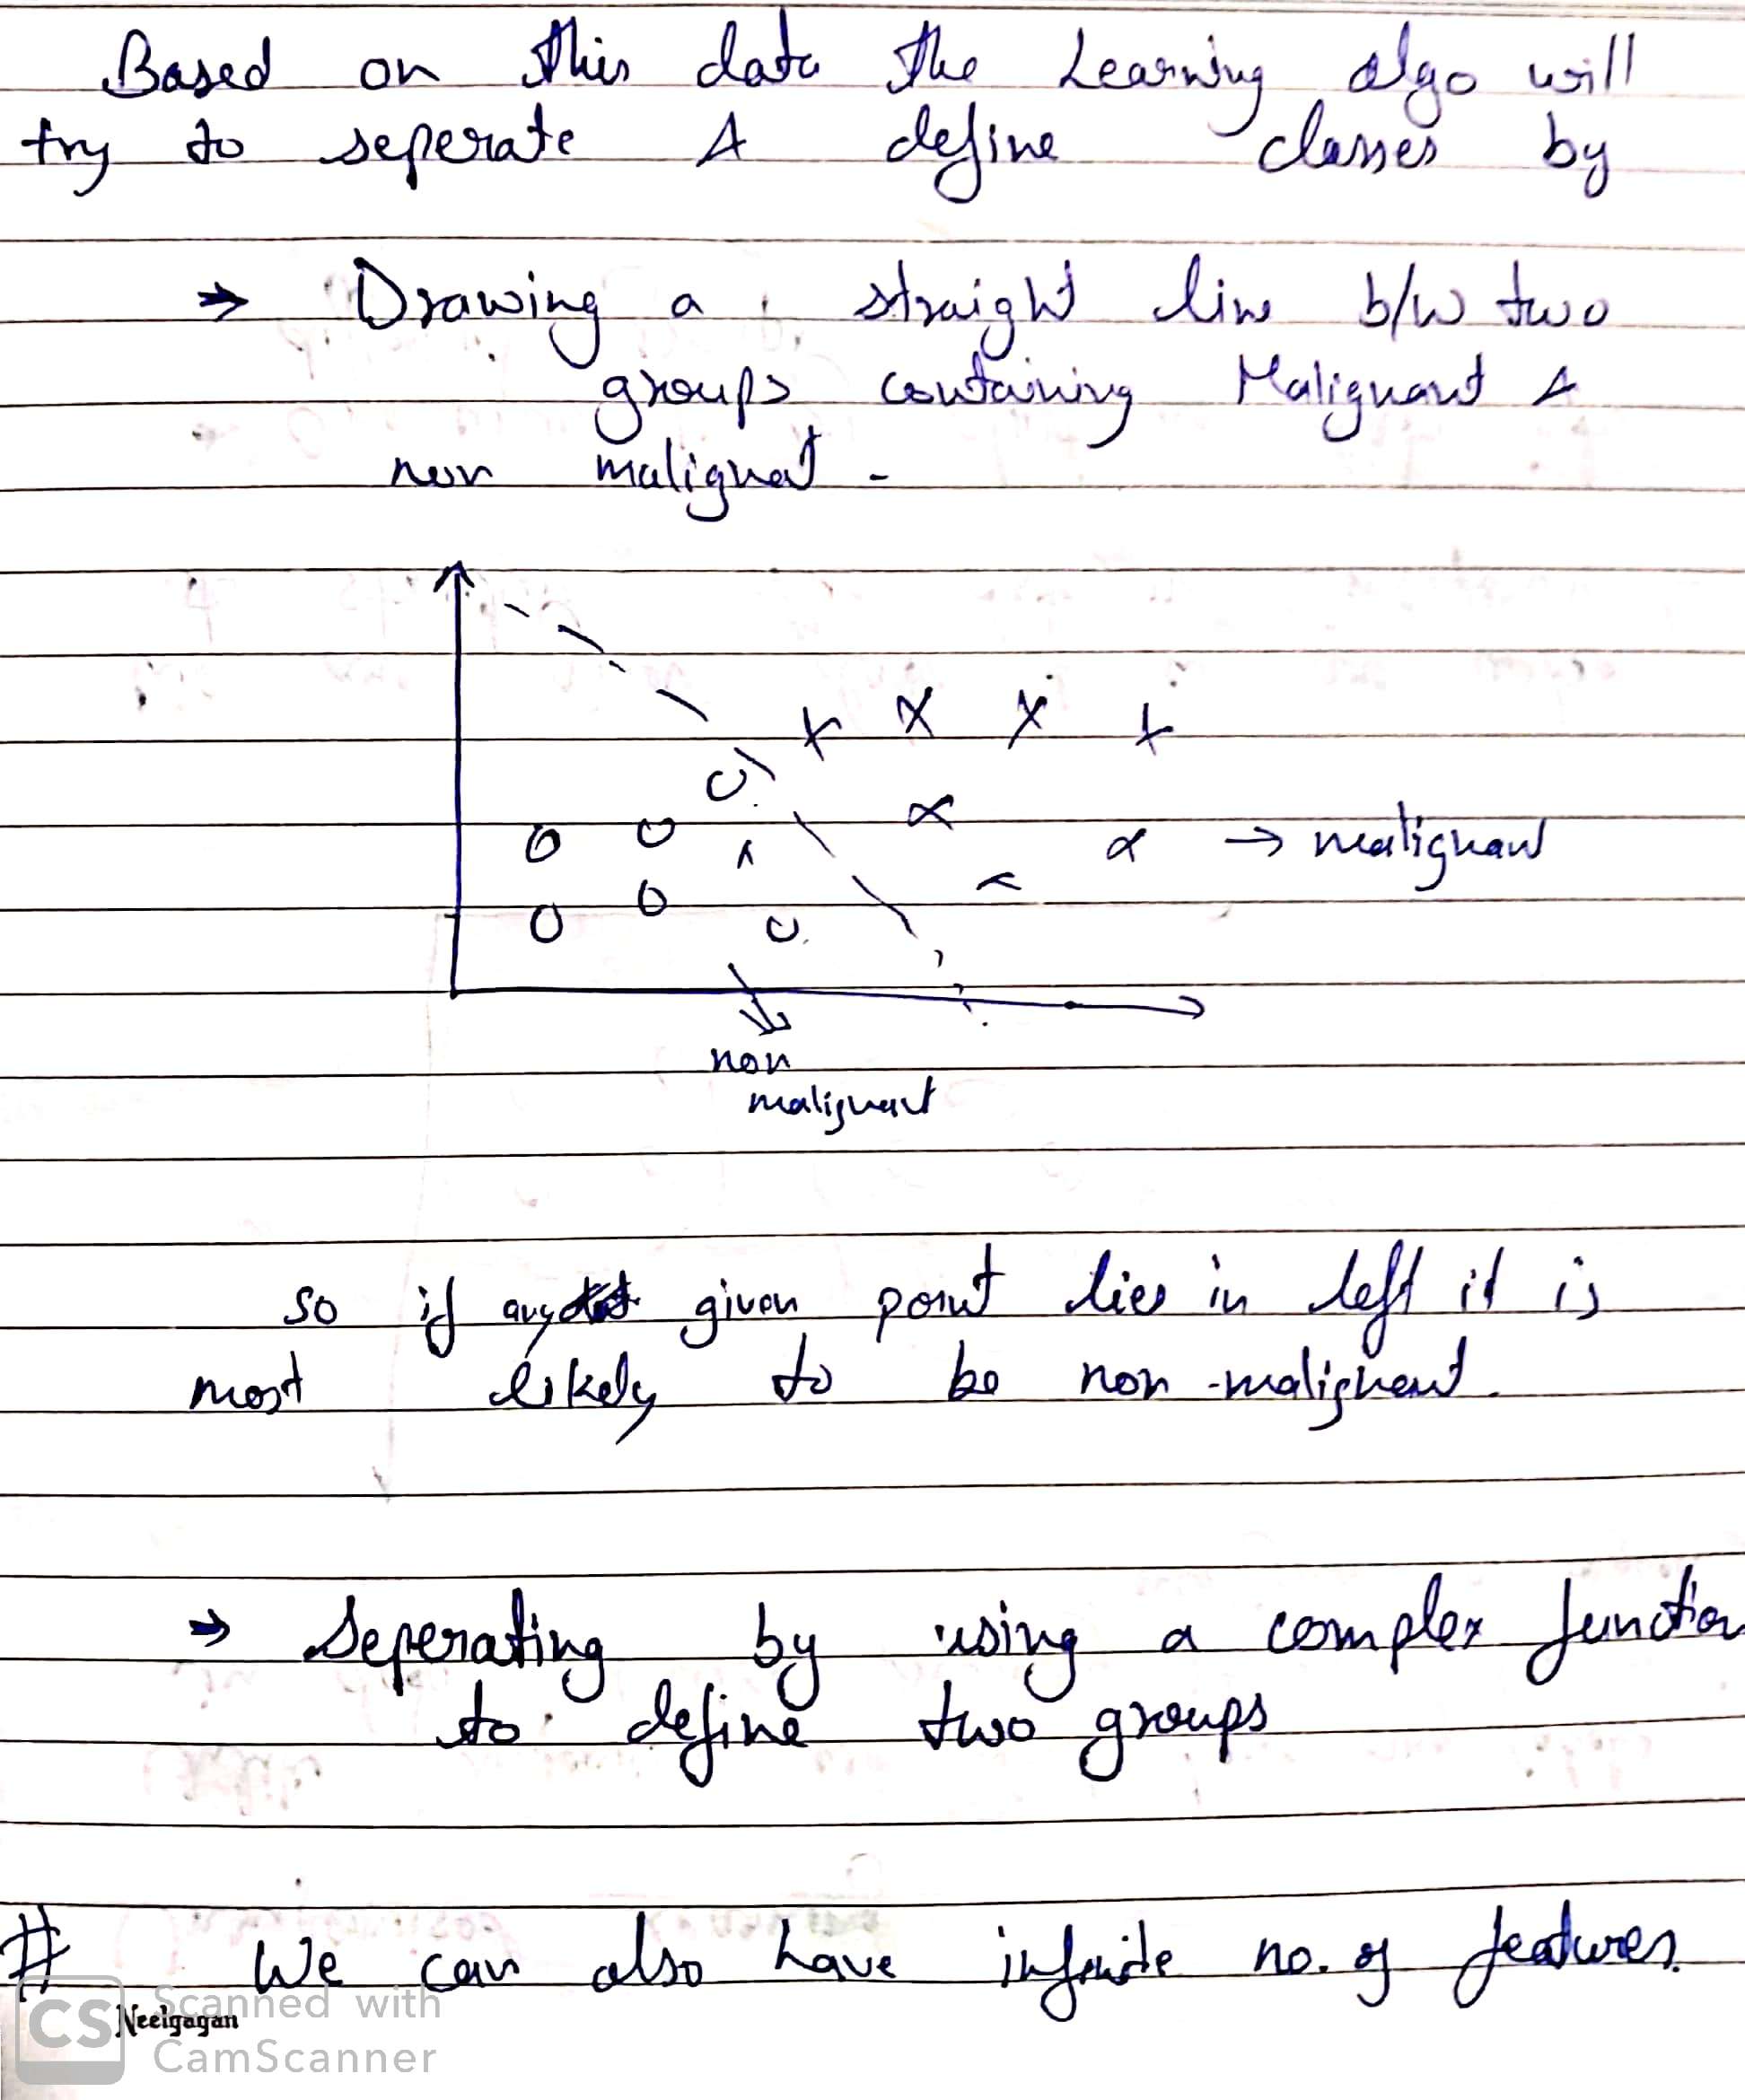 Based on this data the Learning algo will
try to seperate & define classes by
⇒ Drawing a straight line b/w two
groups containing Malignant &
non malignat -
→ malignant
non
malignant
so if any given point lies in left it is
most likely to be non-malignant.
⇒ Seperating by using a complex function
to define two groups
# We can also have infinite no. of features.
CS Scanned with
Neelgagan
CamScanner